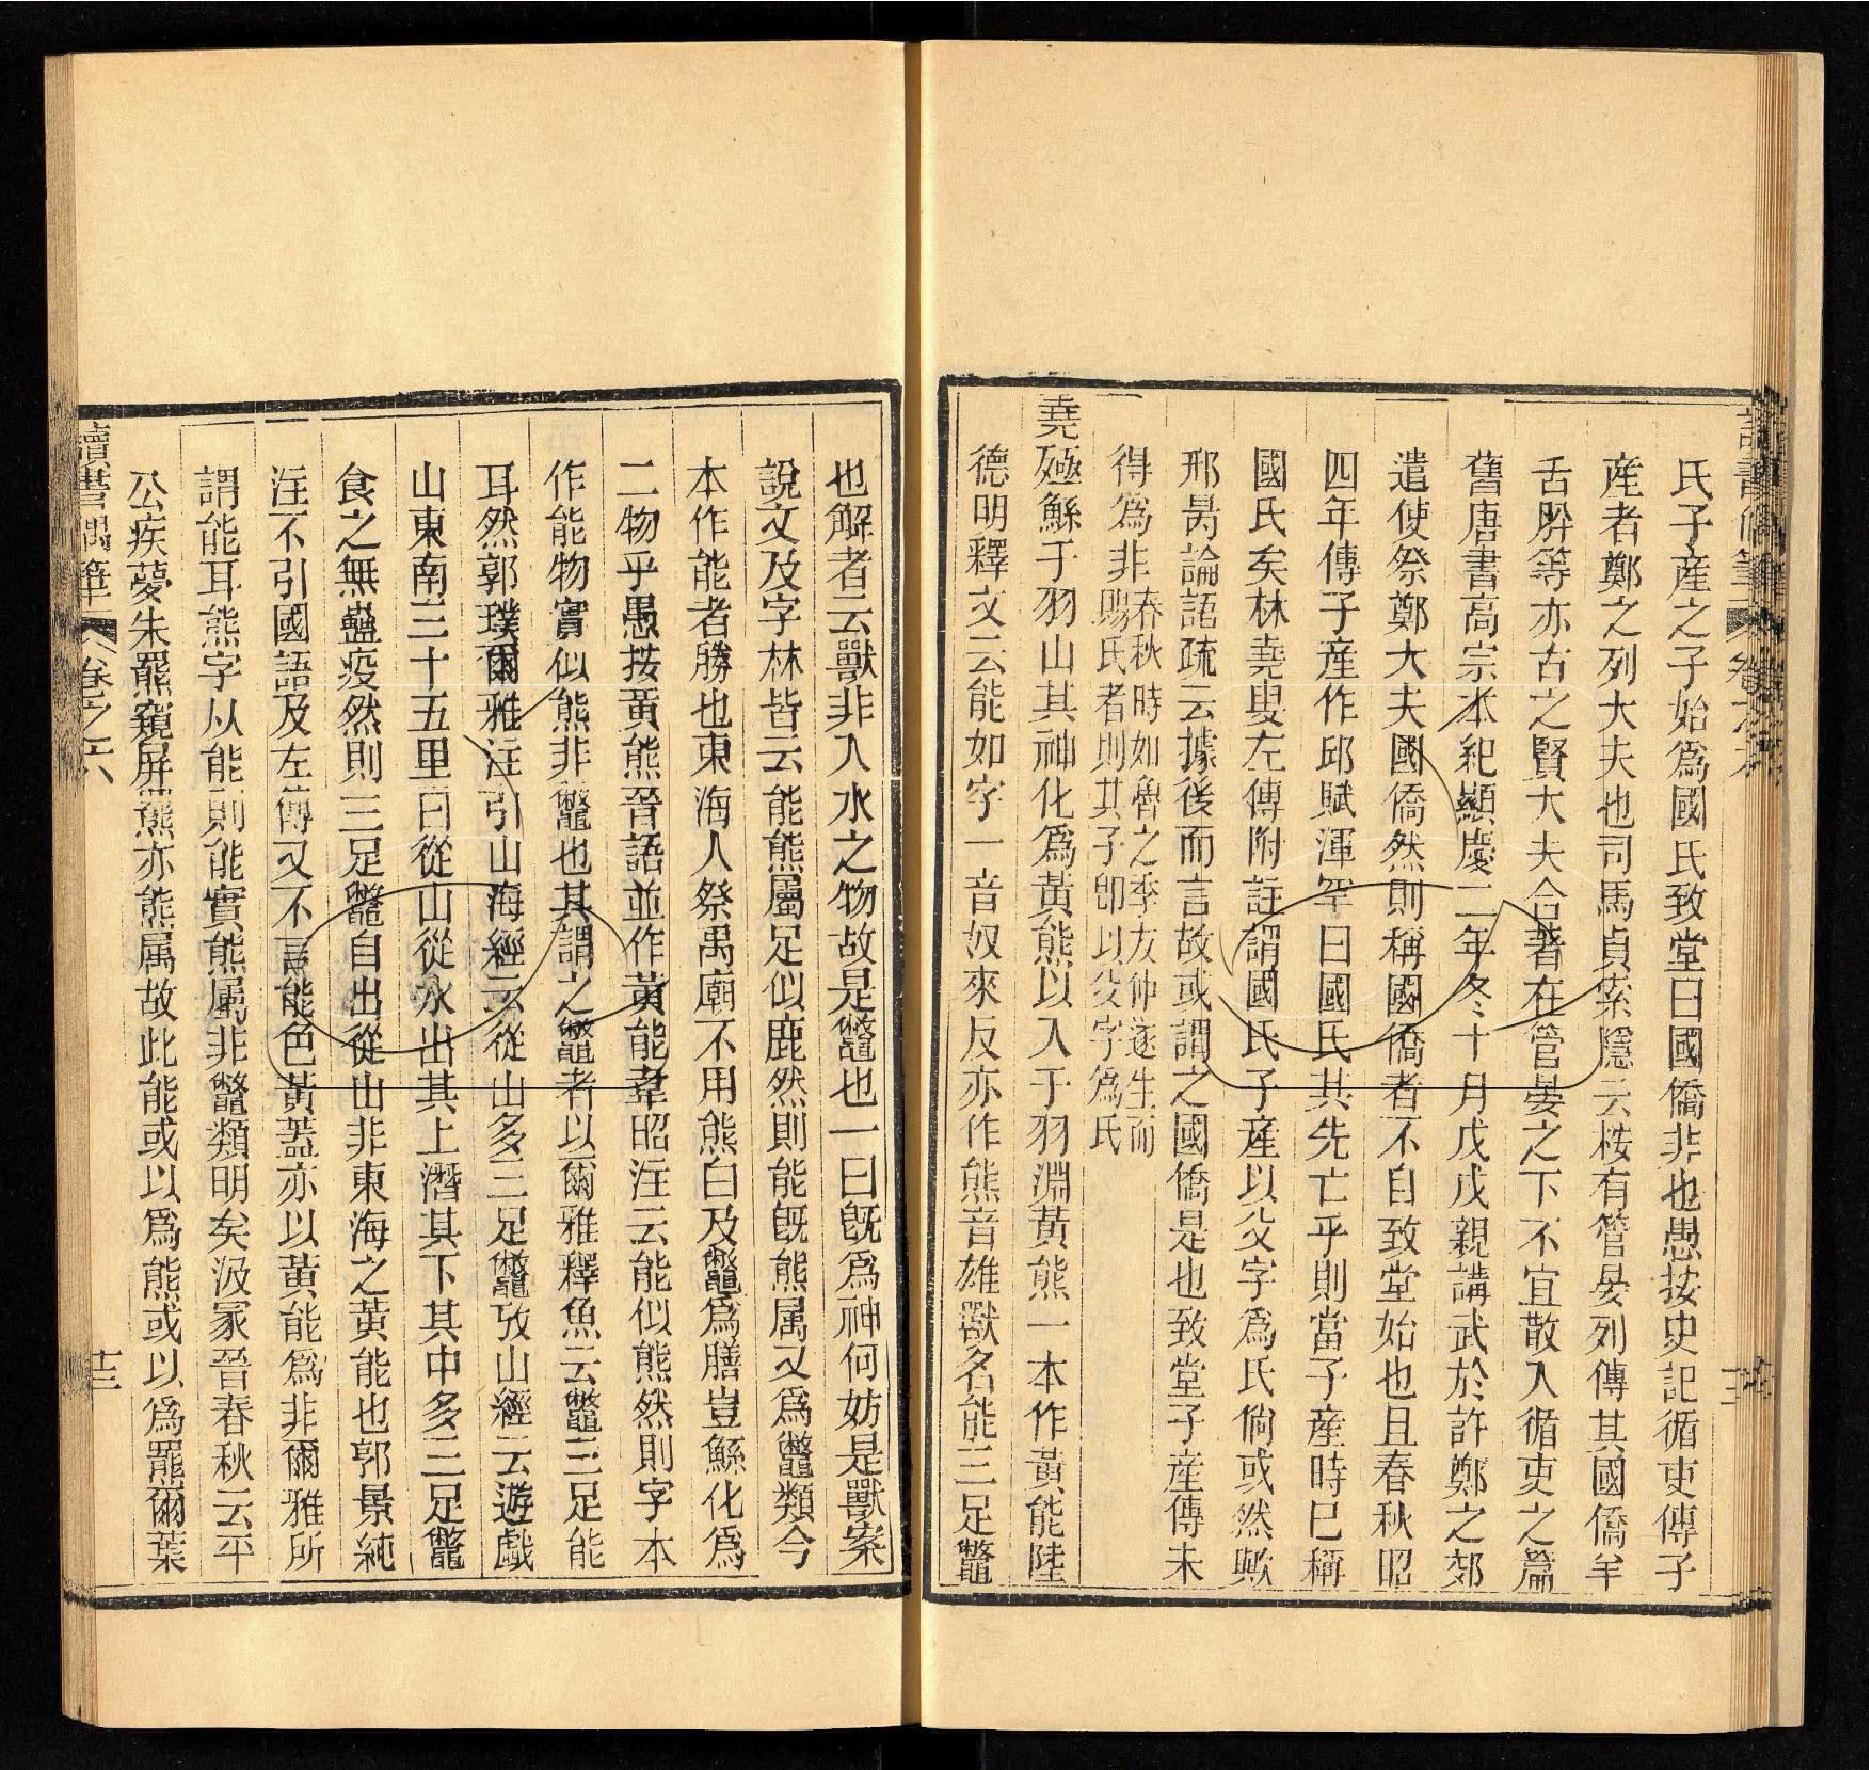 氏子產之子始爲國氏致堂曰國僑非也愚按史記循吏傳子
產者鄭之列大夫也司馬貞索隱云桉有管晏列傳其國僑羊
舌肸等亦古之賢大夫合著在管晏之下不宜散入循吏之篇
舊唐書高宗本紀顯慶二年冬十月戊戌親講武於許鄭之郊
遣使祭鄭大夫國僑然則稱國僑者不自致堂始也且春秋昭
四年傳子產作邱賦渾罕曰國氏其先亡乎則當子產時巳稱
國氏矣林堯叟左傳附註謂國氏子產以父字爲氏倘或然歟
邢昺論語疏云據後而言故或謂之國僑是也致堂子產傳未
得爲非春秋時如魯之季友仲遂生而
賜氏者則其子卽以父字爲氏
堯殛鯀于羽山其神化爲黃熊以入于羽淵黃熊一本作黃能陸
德明釋文云能如字一音奴來反亦作熊音雄獸名能三足鼈
也解者云獸非入水之物故是鼈也一曰旣爲神何妨是獸案
說文及字林皆云能熊屬足似鹿然則能旣熊属又爲鼈類今
本作能者勝也東海人祭禹廟不用熊白及鼈爲膳豈鯀化爲
二物乎愚按黃熊晉語並作黃能韋昭注云能似熊然則字本
作能物實似熊非鼈也其謂之鼈者以爾雅釋魚云鼈三足能
耳然郭璞爾雅注引山海經云從山多三足鼈攷山經云遊戲
山東南三十五里曰從山從水出其上潛其下其中多三足鼈
食之無蠱疫然則三足鼈自出從山非東海之黃能也郭景純
注不引國語及左傳又不言能色黃葢亦以黃能爲非爾雅所
謂能耳熊字从能則能實熊屬非鼈類明矣汲冢晉春秋云平
公疾夢朱羆窺屏熊亦熊属故此能或以爲熊或以爲羆爾葉
讀書偶筆
卷之六
十三